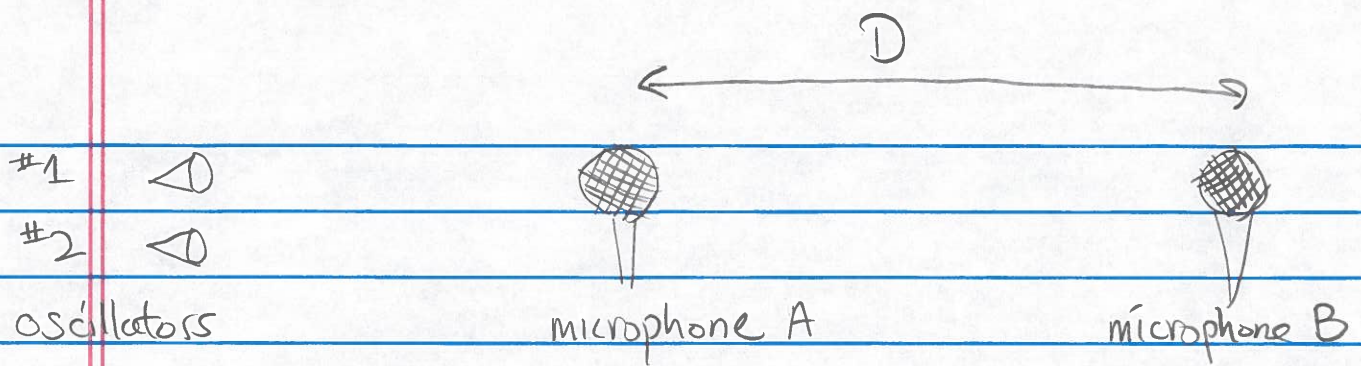 D
#1
#2
oscillators microphone A microphone B